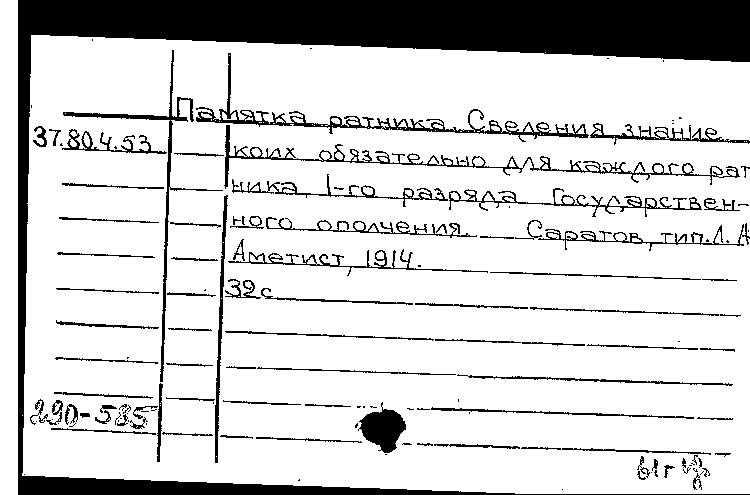 Памятка ратника. Сведения, знание
37.80.4.53
коих обязательно для каждого рат
ника 1-го разряда Государствен-
ного ополчения. Саратов, тип. Л. А
Аметист, 1914.
32 с
290-585